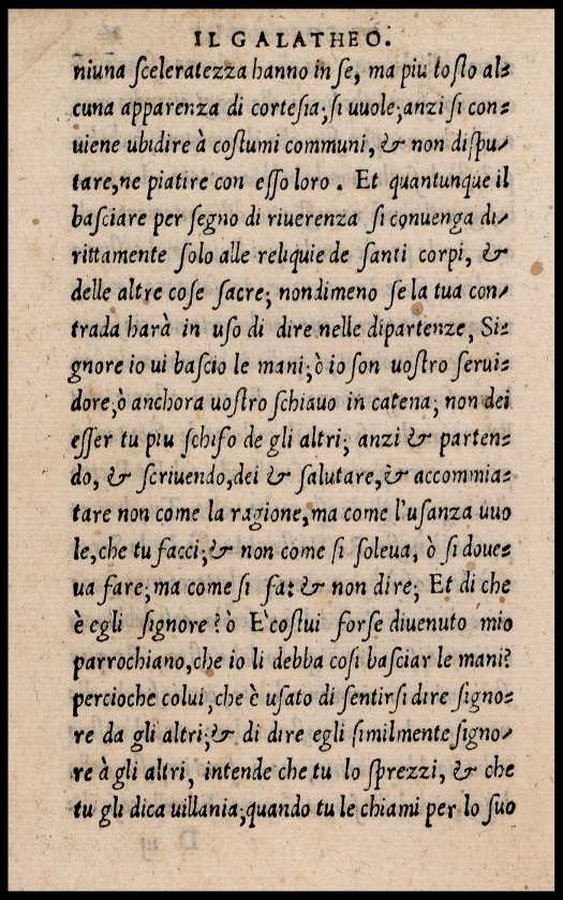 IL GALATHEO.
niuna sceleratezza hanno in se, ma piu tosto al=
cuna apparenza di cortesia; si uuole; anzi si con=
uiene ubidire à costumi communi, & non dispu-
tare, ne piatire con esso loro. Et quantunque il
basciare per segno di riuerenza si conuenga di-
rittamente solo alle reliquie de santi corpi, &
delle altre cose sacre; nondimeno se la tua con-
trada harà in uso di dire nelle dipartenze, Si=
gnore io ui bascio le mani; ò io son uostro serui=
dore; ò anchora uostro schiauo in catena; non dei
esser tu piu schifo de gli altri; anzi & parten=
do, & scriuendo, dei & salutare, & accommia=
tare non come la ragione, ma come l'usanza uuo
le, che tu facci; & non come si soleua, ò si doue=
ua fare; ma come si fa: & non dire; Et di che
è egli signore? ò E costui forse diuenuto mio
parrochiano, che io li debba cosi basciar le mani?
percioche colui, che è usato di sentirsi dire signo=
re da gli altri; & di dire egli similmente signo-
re à gli altri, intende che tu lo sprezzi, & che
tu gli dica uillania; quando tu le chiami per lo suo